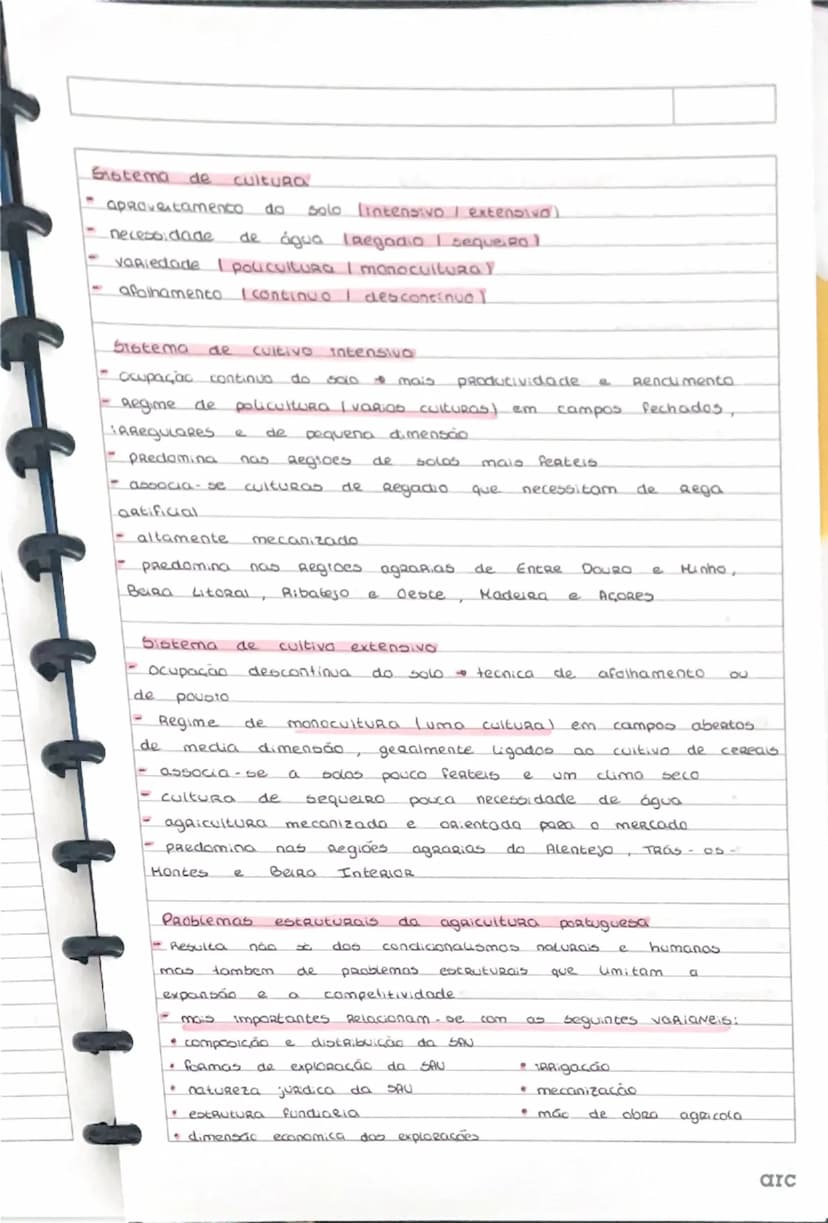 Sistema de cultura
- aproveitamento do solo (intensivo / extensivo)
- necessidade de água (regadio / sequeiro)
- variedade (policultura / monocultura)
- afolhamento (continuo / descontinuo)
Sistema de cultivo intensivo
- ocupação continua do solo → mais produtividade e rendimento
- Regime de policultura (varias culturas) em campos fechados,
irregulares e de pequena dimensão
- predomina nas regiões de solos mais ferteis
- associa-se culturas de regadio que necessitam de rega
artificial
- altamente mecanizado
- predomina nas regiões agrarias de Entre Douro e Minho,
Beira Litoral, Ribatejo e Oeste, Madeira e Açores
Sistema de cultivo extensivo
- ocupação descontinua do solo → tecnica de afolhamento ou
de pousio
- Regime de monocultura (uma cultura) em campos abertos
de media dimensão, geralmente ligados ao cultivo de cereais
- associa-se a solos pouco ferteis e um clima seco
- cultura de sequeiro pouca necessidade de água
- agricultura mecanizada e orientada para o mercado
- predomina nas regiões agrarias do Alentejo, Trás-os-
Montes e Beira Interior
Problemas estruturais da agricultura portuguesa
- Resulta não só dos condicionalismos naturais e humanos
mas tambem de problemas estruturais que limitam a
expansão e a competitividade
- mais importantes relacionam-se com as seguintes variaveis:
• composição e distribuição da SAU
• formas de exploração da SAU
• irrigação
• natureza juridica da SAU
• mecanização
• estrutura fundiaria
• mão de obra agricola
• dimensão economica das explorações
arc